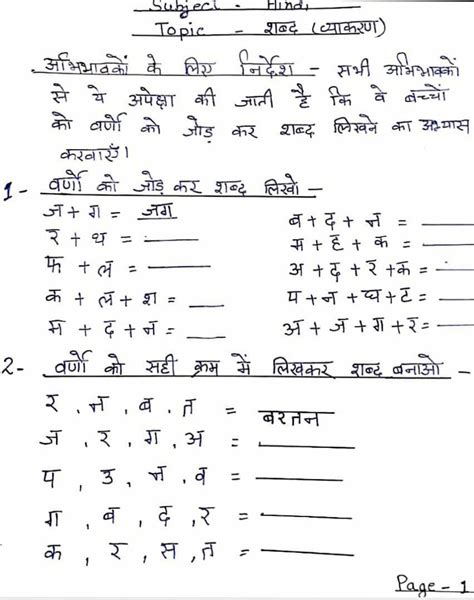 Subject - Hindi
Topic - शब्द (व्याकरण)
अभिभावकों के लिए निर्देश - सभी अभिभावकों
से ये अपेक्षा की जाती है कि वे बच्चों
को वर्णों को जोड़ कर शब्द लिखने का अभ्यास
करवाएँ।
1 - वर्णों को जोड़ कर शब्द लिखो -
ज + ग = जग
ब + द + न =
र + थ =
म + ह + क =
फ + ल =
अ + द + र + क =
क + ल + श =
प + न + घ + ट =
म + द + न =
अ + ज + ग + र =
2 - वर्णों को सही क्रम में लिखकर शब्द बनाओ -
र , न , ब , त = बरतन
ज , र , ग , अ =
प , उ , न , व =
ग , ब , द , र =
क , र , स , त =
Page - 1